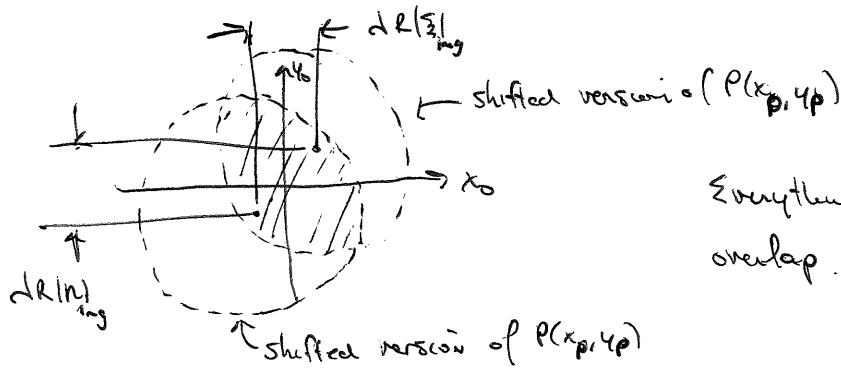 λR|ξ|img
y₀
← shifted version of P(xp, yp)
x₀
overlap.
λR|η|img
shifted version of P(xp, yp)